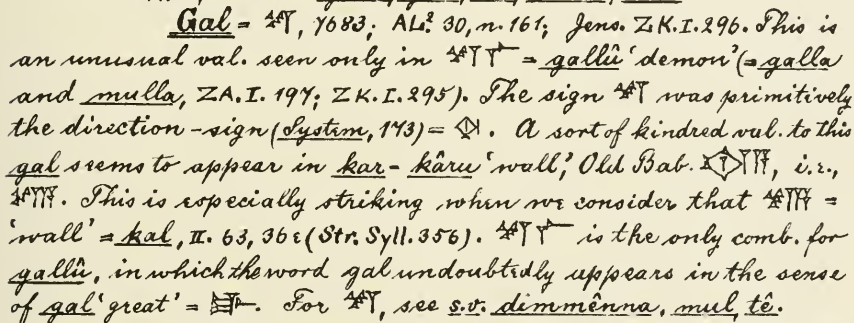 Gal = 𒋼, 7683; AL². 30, n. 161; Jens. ZK. I. 296. This is
an unusual val. seen only in 𒋼𒇲 = gallû 'demon' (= galla
and mulla, ZA. I. 197; ZK. I. 295). The sign 𒋼 was primitively
the direction-sign (System, 173) = . A sort of kindred val. to this
gal seems to appear in kar - kâru 'wall,' Old Bab. , i.e.,
𒋼𒀀. This is especially striking when we consider that 𒋼𒀀 =
'wall' = kal, II. 63, 36ε (Str. Syll. 356). 𒋼𒇲 is the only comb. for
gallû, in which the word gal undoubtedly appears in the sense
of gal 'great' = 𒃲. For 𒋼, see s.v. dimmênna, mul, tê.